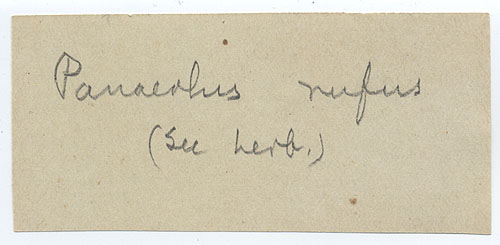 Panaeolus rufus
(See herb.)